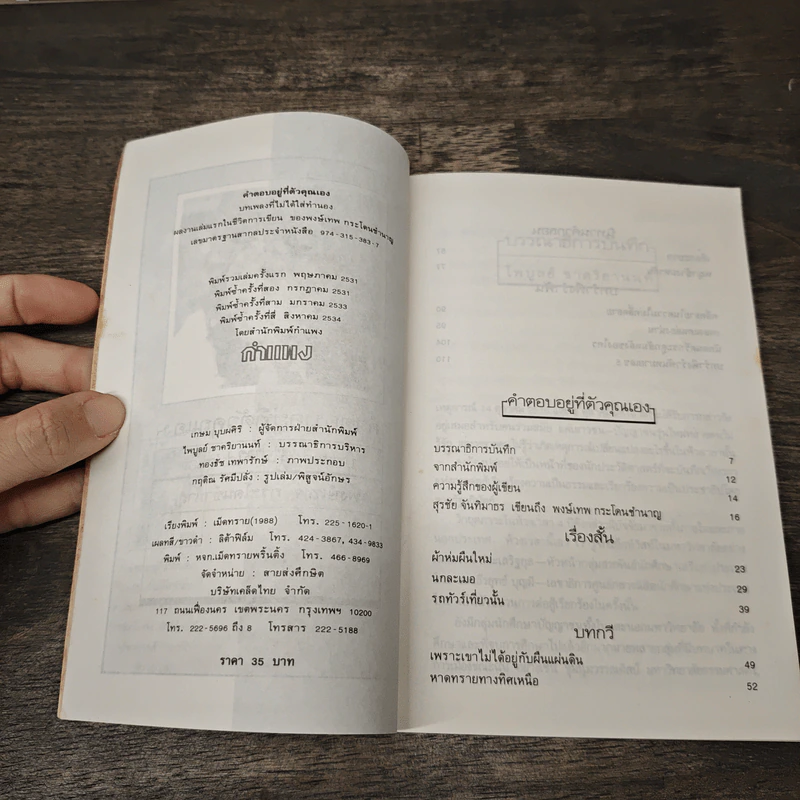 คำตอบอยู่ที่ตัวคุณเอง
บทเพลงที่ไม่ได้ใส่ทำนอง
ผลงานเล่มแรกในชีวิตการเขียน ของพงษ์เทพ กระโดนชำนาญ
เลขมาตรฐานสากลประจำหนังสือ 974-315-383-7
พิมพ์รวมเล่มครั้งแรก พฤษภาคม 2531
พิมพ์ซ้ำครั้งที่สอง กรกฎาคม 2531
พิมพ์ซ้ำครั้งที่สาม มกราคม 2533
พิมพ์ซ้ำครั้งที่สี่ สิงหาคม 2534
โดยสำนักพิมพ์กำแพง
กำแพง
เกษม บุบผศิริ : ผู้จัดการฝ่ายสำนักพิมพ์
ไพบูลย์ ชาคริยานนท์ : บรรณาธิการบริหาร
ทองธัช เทพารักษ์ : ภาพประกอบ
กฤติณ รัศมีปลั่ง : รูปเล่ม/พิสูจน์อักษร
เรียงพิมพ์ : เม็ดทราย(1988) โทร. 225-1620-1
เพลทสี/ขาวดำ : ลิต้าฟิล์ม โทร. 424-3867, 434-9833
พิมพ์ : หจก.เม็ดทรายพริ้นติ้ง โทร. 466-8969
จัดจำหน่าย : สายส่งศึกษิต
บริษัทเคล็ดไทย จำกัด
117 ถนนเฟื่องนคร เขตพระนคร กรุงเทพฯ 10200
โทร. 222-5696 ถึง 8 โทรสาร 222-5188
ราคา 35 บาท
คำตอบอยู่ที่ตัวคุณเอง
บรรณาธิการบันทึก 7
จากสำนักพิมพ์ 12
ความรู้สึกของผู้เขียน 14
สุรชัย จันทิมาธร เขียนถึง พงษ์เทพ กระโดนชำนาญ 16
เรื่องสั้น
ผ้าห่มผืนใหม่ 23
นกละเมอ 29
รถทัวร์เที่ยวนั้น 39
บทกวี
เพราะเขาไม่ได้อยู่กับผืนแผ่นดิน 49
หาดทรายทางทิศเหนือ 52